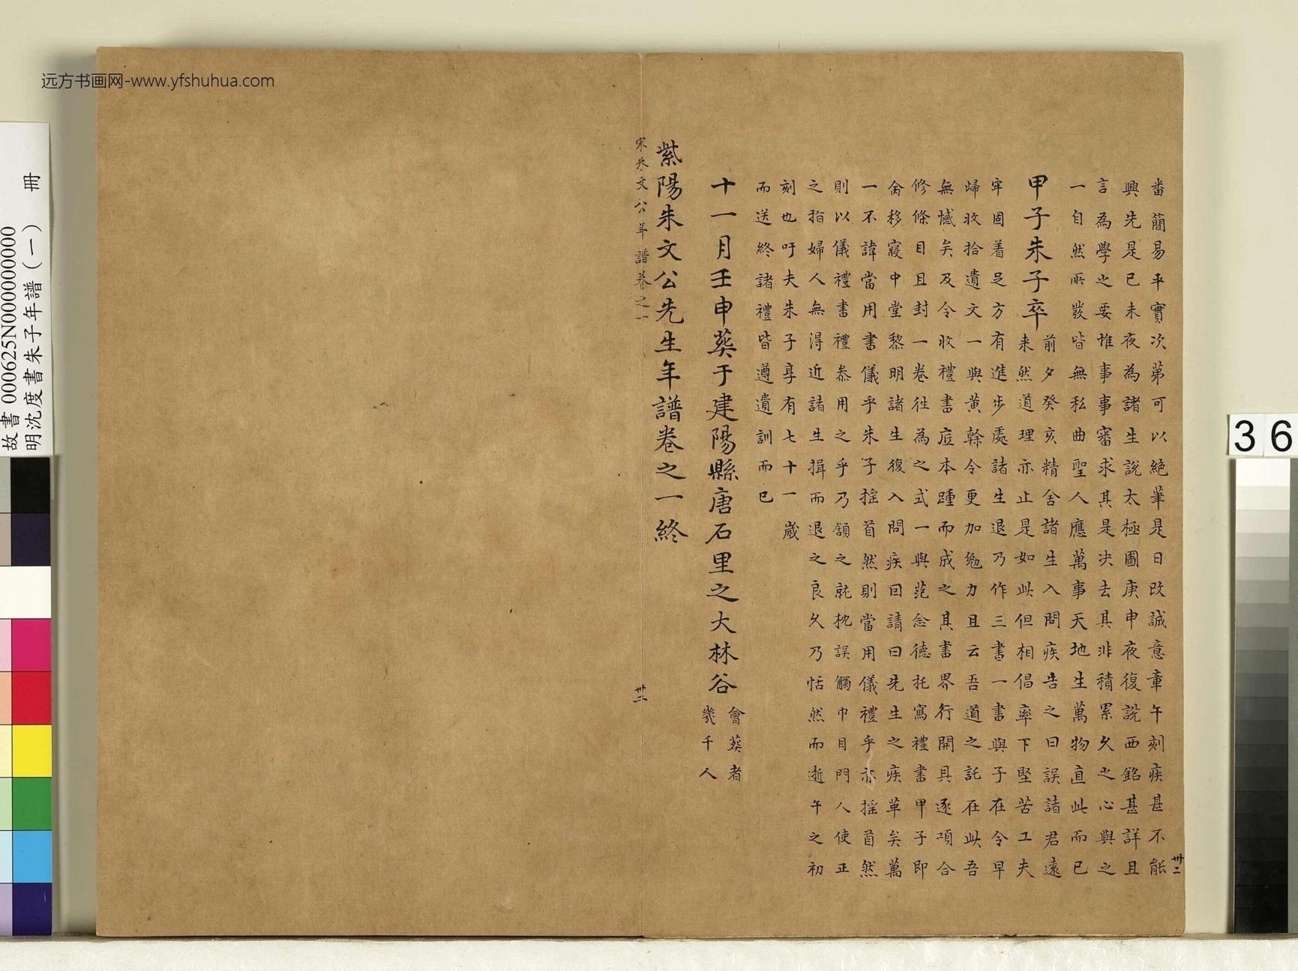 远方书画网-www.yfshuhua.com
故書000625N000000000
明沈度書朱子年譜(一) 冊
36
番簡易平實次第可以絕筆是日改誠意章午刻疾甚不能
興先是己未夜為諸生說太極圖庚申夜復說西銘甚詳且
言為學之要惟事事審求其是決去其非積累久之心與之
一自然所發皆無私曲聖人應萬事天地生萬物直此而已
甲子朱子卒
前夕癸亥精舍諸生入問疾告之曰誤諸君遠
来然道理亦止是如此但相倡率下堅苦工夫
牢固着足方有進步處諸生退乃作三書一書與子在令早
歸收拾遺文一與黃榦令更加勉力且云吾道之託在此吾
無憾矣及令收禮書底本踵而成之其書界行開具逐項合
修條目且封一卷往為之式一與范念德托寫禮書甲子即
命移寢中堂黎明諸生復入問疾因請曰先生之疾革矣萬
一不諱當用書儀乎朱子搖首然則當用儀禮乎亦搖首然
則以儀禮書禮叅用之乎乃頷之就枕誤觸巾目門人使正
之指婦人無得近諸生揖而退之良久乃恬然而逝午之初
刻也吁夫朱子享有七十一歲
而送終諸禮皆遵遺訓而已
十一月壬申葬于建陽縣唐石里之大林谷
會葬者
幾千人
紫陽朱文公先生年譜卷之一終
宋朱文公年譜卷之一
卅二
卅二